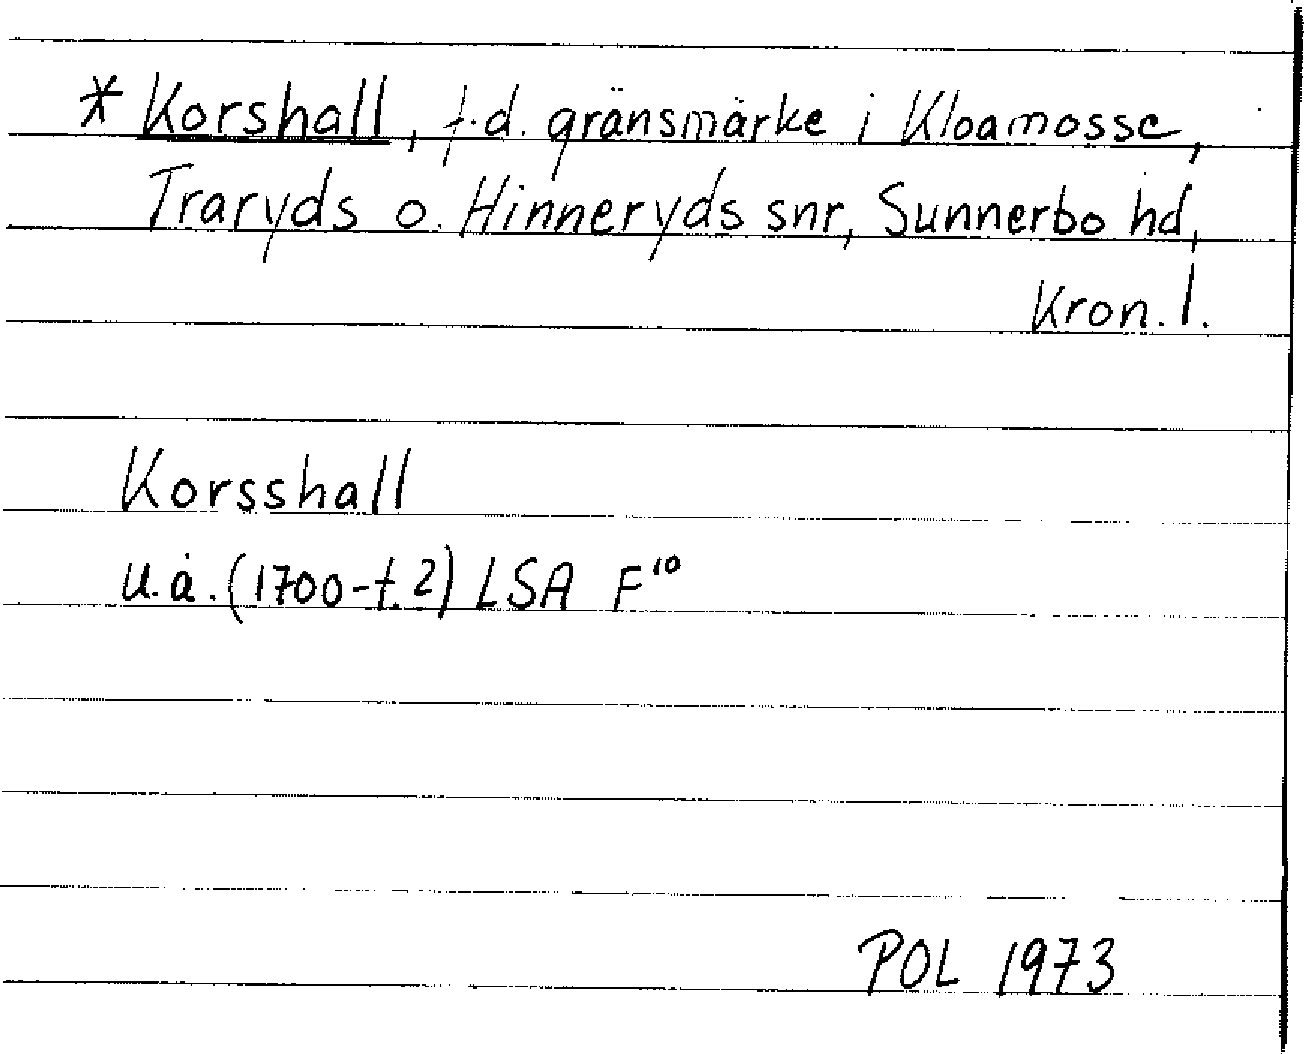 * Korshall, f.d. gränsmärke i Kloamosse,
Traryds o. Hinneryds snr, Sunnerbo hd,
Kron. l.
Korsshall
u.å. (1700-t.?) LSA F¹⁰
POL 1973